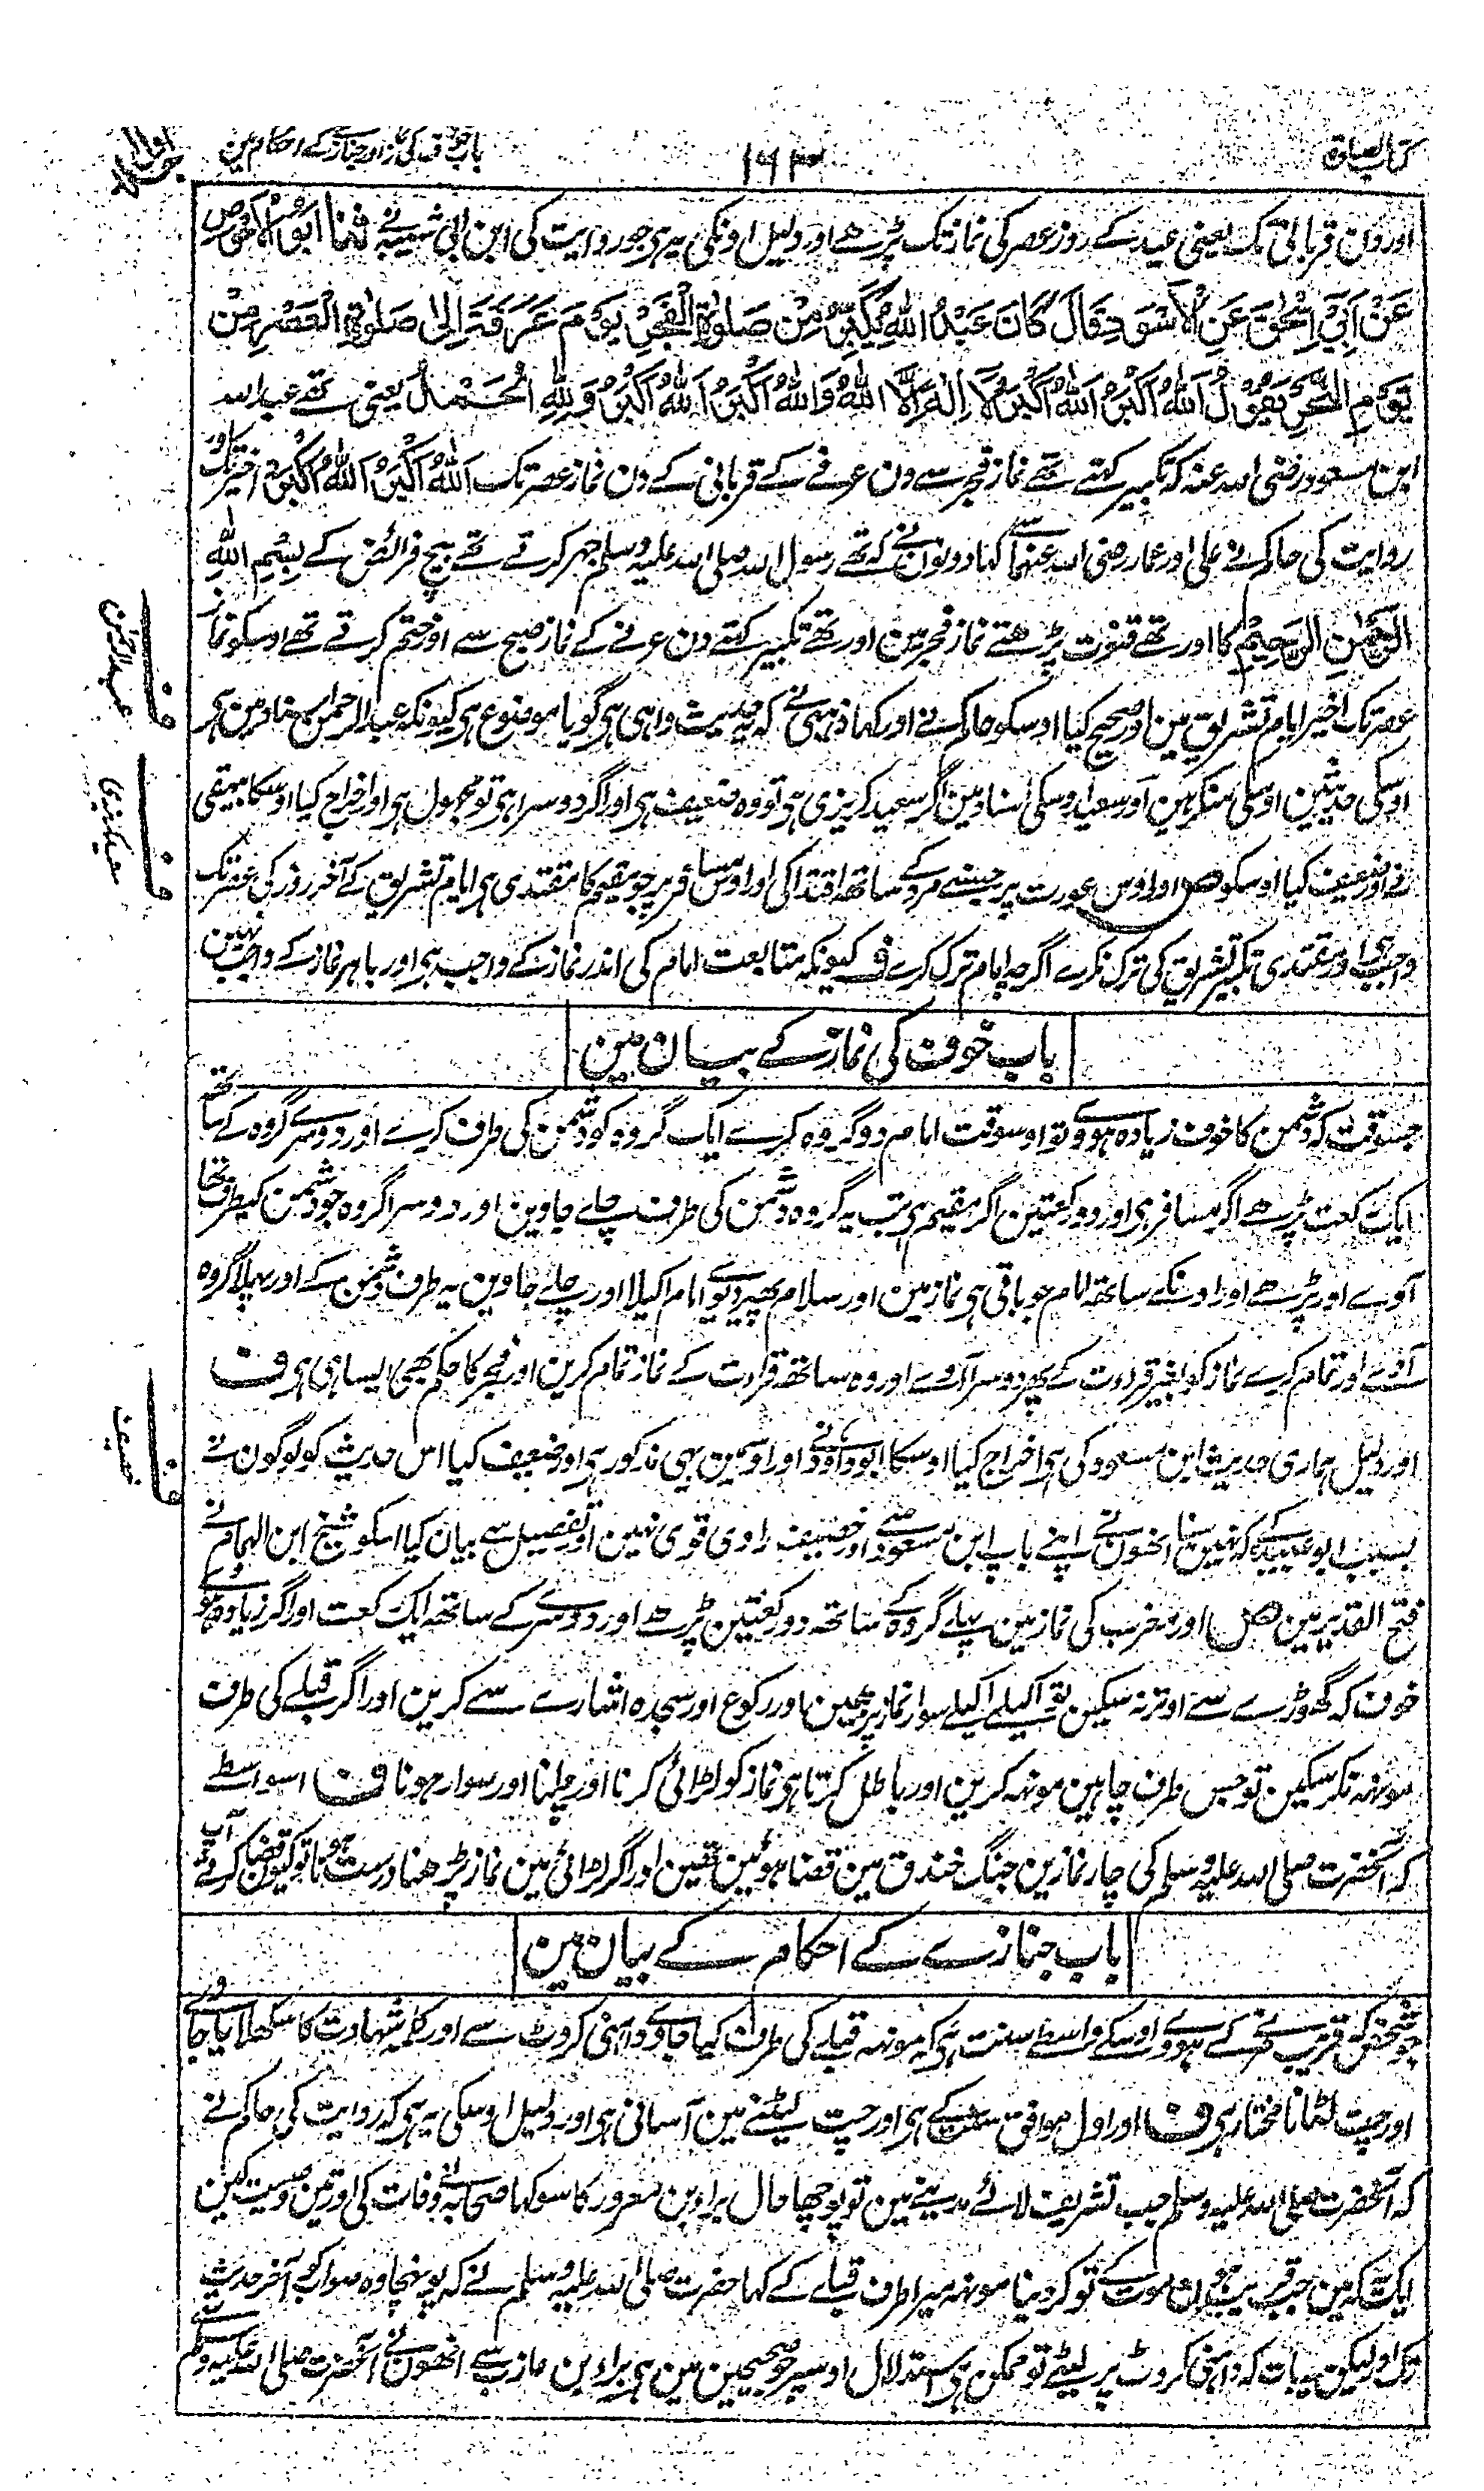 کتاب الصلوۃ
۱۶۳
باب خوف کی نماز اور جنازے کے احکام مین
اور دن قربانی تک یعنی عید کے روز عصر کی نماز تک پڑھے اور دلیل اونکی یہ ہی جو روایت کی ابن ابی شیبہ نے ثنا اَبُو الْاَحْوَصِ
عَنْ اَبِیْ اِسْحٰقَ عَنِ الْاَسْوَدِ قَالَ کَانَ عَبْدُ اللهِ یُکَبِّرُ مِنْ صَلٰوةِ الْفَجْرِ یَوْمَ عَرَفَةَ اِلٰی صَلٰوةِ الْعَصْرِ مِنْ
یَوْمِ النَّحْرِ یَقُوْلُ اَللهُ اَکْبَرُ اَللهُ اَکْبَرُ لَا اِلٰهَ اِلَّا اللهُ وَاللهُ اَکْبَرُ اَللهُ اَکْبَرُ وَلِلّٰهِ الْحَمْدُ یعنی تھے عبد الله
ابن مسعود رضی الله عنہ کہ تکبیر کہتے تھے نماز فجر سے دن عرفے کے قربانی کے دن نماز عصر تک اَللهُ اَکْبَرُ اَللهُ اَکْبَرُ اخیر تک اور
روایت کی حاکم نے علی اور عمار رضی الله عنہما سے کہا دونوں نے کہ تھے رسول الله صلی الله علیہ وسلم جہر کرتے تھے بیچ فرائض کے بِسْمِ اللهِ
الرَّحْمٰنِ الرَّحِیْمِ کا اور تھے قنوت پڑھتے نماز فجر مین اور تھے تکبیر کہتے دن عرفے کے نماز صبح سے اور ختم کرتے تھے اوسکو نماز
عصر تک اخیر ایام تشریق مین اور صحیح کیا اوسکو حاکم نے اور کہا ذہبی نے کہ یہ حدیث واہی ہی گویا موضوع ہی کیونکہ عبد الرحمن اسناد مین ہی
اوسکی حدیثین اوسکی منکر ہین اور سعید اوسکی اسناد مین اگر سعید کریزی ہی تو وہ ضعیف ہی اور اگر دوسرا ہی تو مجہول ہی اور اخراج کیا اوسکا بیہقی
نے اور ضعیف کیا اوسکو ص اور اوس عورت پر جسنے مرد کے ساتھ اقتدا کی اور اوس مسافر پر جو مقیم کا مقتدی ہی ایام تشریق کے آخر روز کی عصر تک
واجب ہی اور مقتدی تکبیر تشریق کی ترک نکرے اگرچہ امام ترک کرے ف کیونکہ متابعت امام کی اندر نماز کے واجب ہی اور باہر نماز کے واجب نہین
باب خوف کی نماز کے بیان مین
جسوقت کہ دشمن کا خوف زیادہ ہووے تو اوسوقت امام دو گروہ کرے ایک گروہ کو دشمن کی طرف کرے اور دوسرے گروہ کے ساتھ
ایک رکعت پڑھے اگر مسافر ہی اور دو رکعتین اگر مقیم ہی تب یہ گروہ دشمن کی طرف چلے جاوین اور دوسرا گروہ جو دشمن کیطرف تھا
آوے اور پڑھے اور اونکے ساتھ امام جو باقی ہی نماز مین اور سلام پھیر دیوے امام اکیلا اور چلے جاوین یہ طرف دشمن کے اور پہلا گروہ
آوے اور تمام کرے نماز کو بغیر قرارت کے پھر دوسرا آوے اور وہ ساتھ قرارت کے نماز تمام کرین اور فجر کا حکم بھی ایسا ہی ہی ف
اور دلیل ہماری حدیث ابن مسعود کی ہی اخراج کیا اوسکا ابو داؤد نے اور اوسمین یہی مذکور ہی اور ضعیف کیا اس حدیث کو لوگون نے
بسبب ابو عبیدہ کے کہ نہین سنا انھون نے اپنے باپ ابن مسعود سے اور خصیف راوی قوی نہین اور تفصیل سے بیان کیا اسکو شیخ ابن الہمام نے
فتح القدیر مین ص اور مغرب کی نماز مین پہلے گروہ کے ساتھ دو رکعتین پڑھے اور دوسرے کے ساتھ ایک رکعت اور اگر زیادہ ہووے
خوف کہ گھوڑے سے اوتر نہ سکین تو اکیلے اکیلے سوار نماز پڑھین اور رکوع اور سجدہ اشارے سے کرین اور اگر قبلے کی طرف
مونہہ نکر سکین تو جس طرف چاہین مونہہ کرین اور باطل کرتا ہی نماز کو لڑائی کرنا اور چلنا اور سوار ہونا ف اسواسطے
کہ آنحضرت صلی الله علیہ وسلم کی چار نمازین جنگ خندق مین قضا ہوئین تھین اور اگر لڑائی مین نماز پڑھنا درست ہوتا تو کیون قضا کرتے آپ
باب جنازے کے احکام کے بیان مین
جو شخص کہ قریب مرنے کے ہووے اوسکے واسطے سنت ہی کہ مونہہ قبلے کی طرف کیا جاوے داہنی کروٹ سے اور کلمہ شہادت کا سکھلایا جاوے
اور چت لٹانا مختار ہی ف اور اول موافق سنت کے ہی اور چت لیٹنے مین آسانی ہی اور دلیل اوسکی یہ ہی کہ روایت کی حاکم نے
کہ آنحضرت صلی الله علیہ وسلم جب تشریف لائے مدینے مین تو پوچھا حال براء بن معرور کا سو کہا صحابہ نے وفات کی اور تین وصیت کین
ایک یہ کہ مین جب قریب ہون موت کے تو کر دینا مونہہ میرا طرف قبلے کے کہا حضرت صلی الله علیہ وسلم نے کہ پہونچا وہ صواب کو آخر حدیث
تک اور لیکن یہ بات کہ داہنی کروٹ پر لیٹے تو ممکن ہی استدلال اوسپر جو صحیحین مین ہی براء بن عازب سے انھون نے آنحضرت صلی الله علیہ وسلم سے
عبد الرحمن
سعید کریزی
خصیف